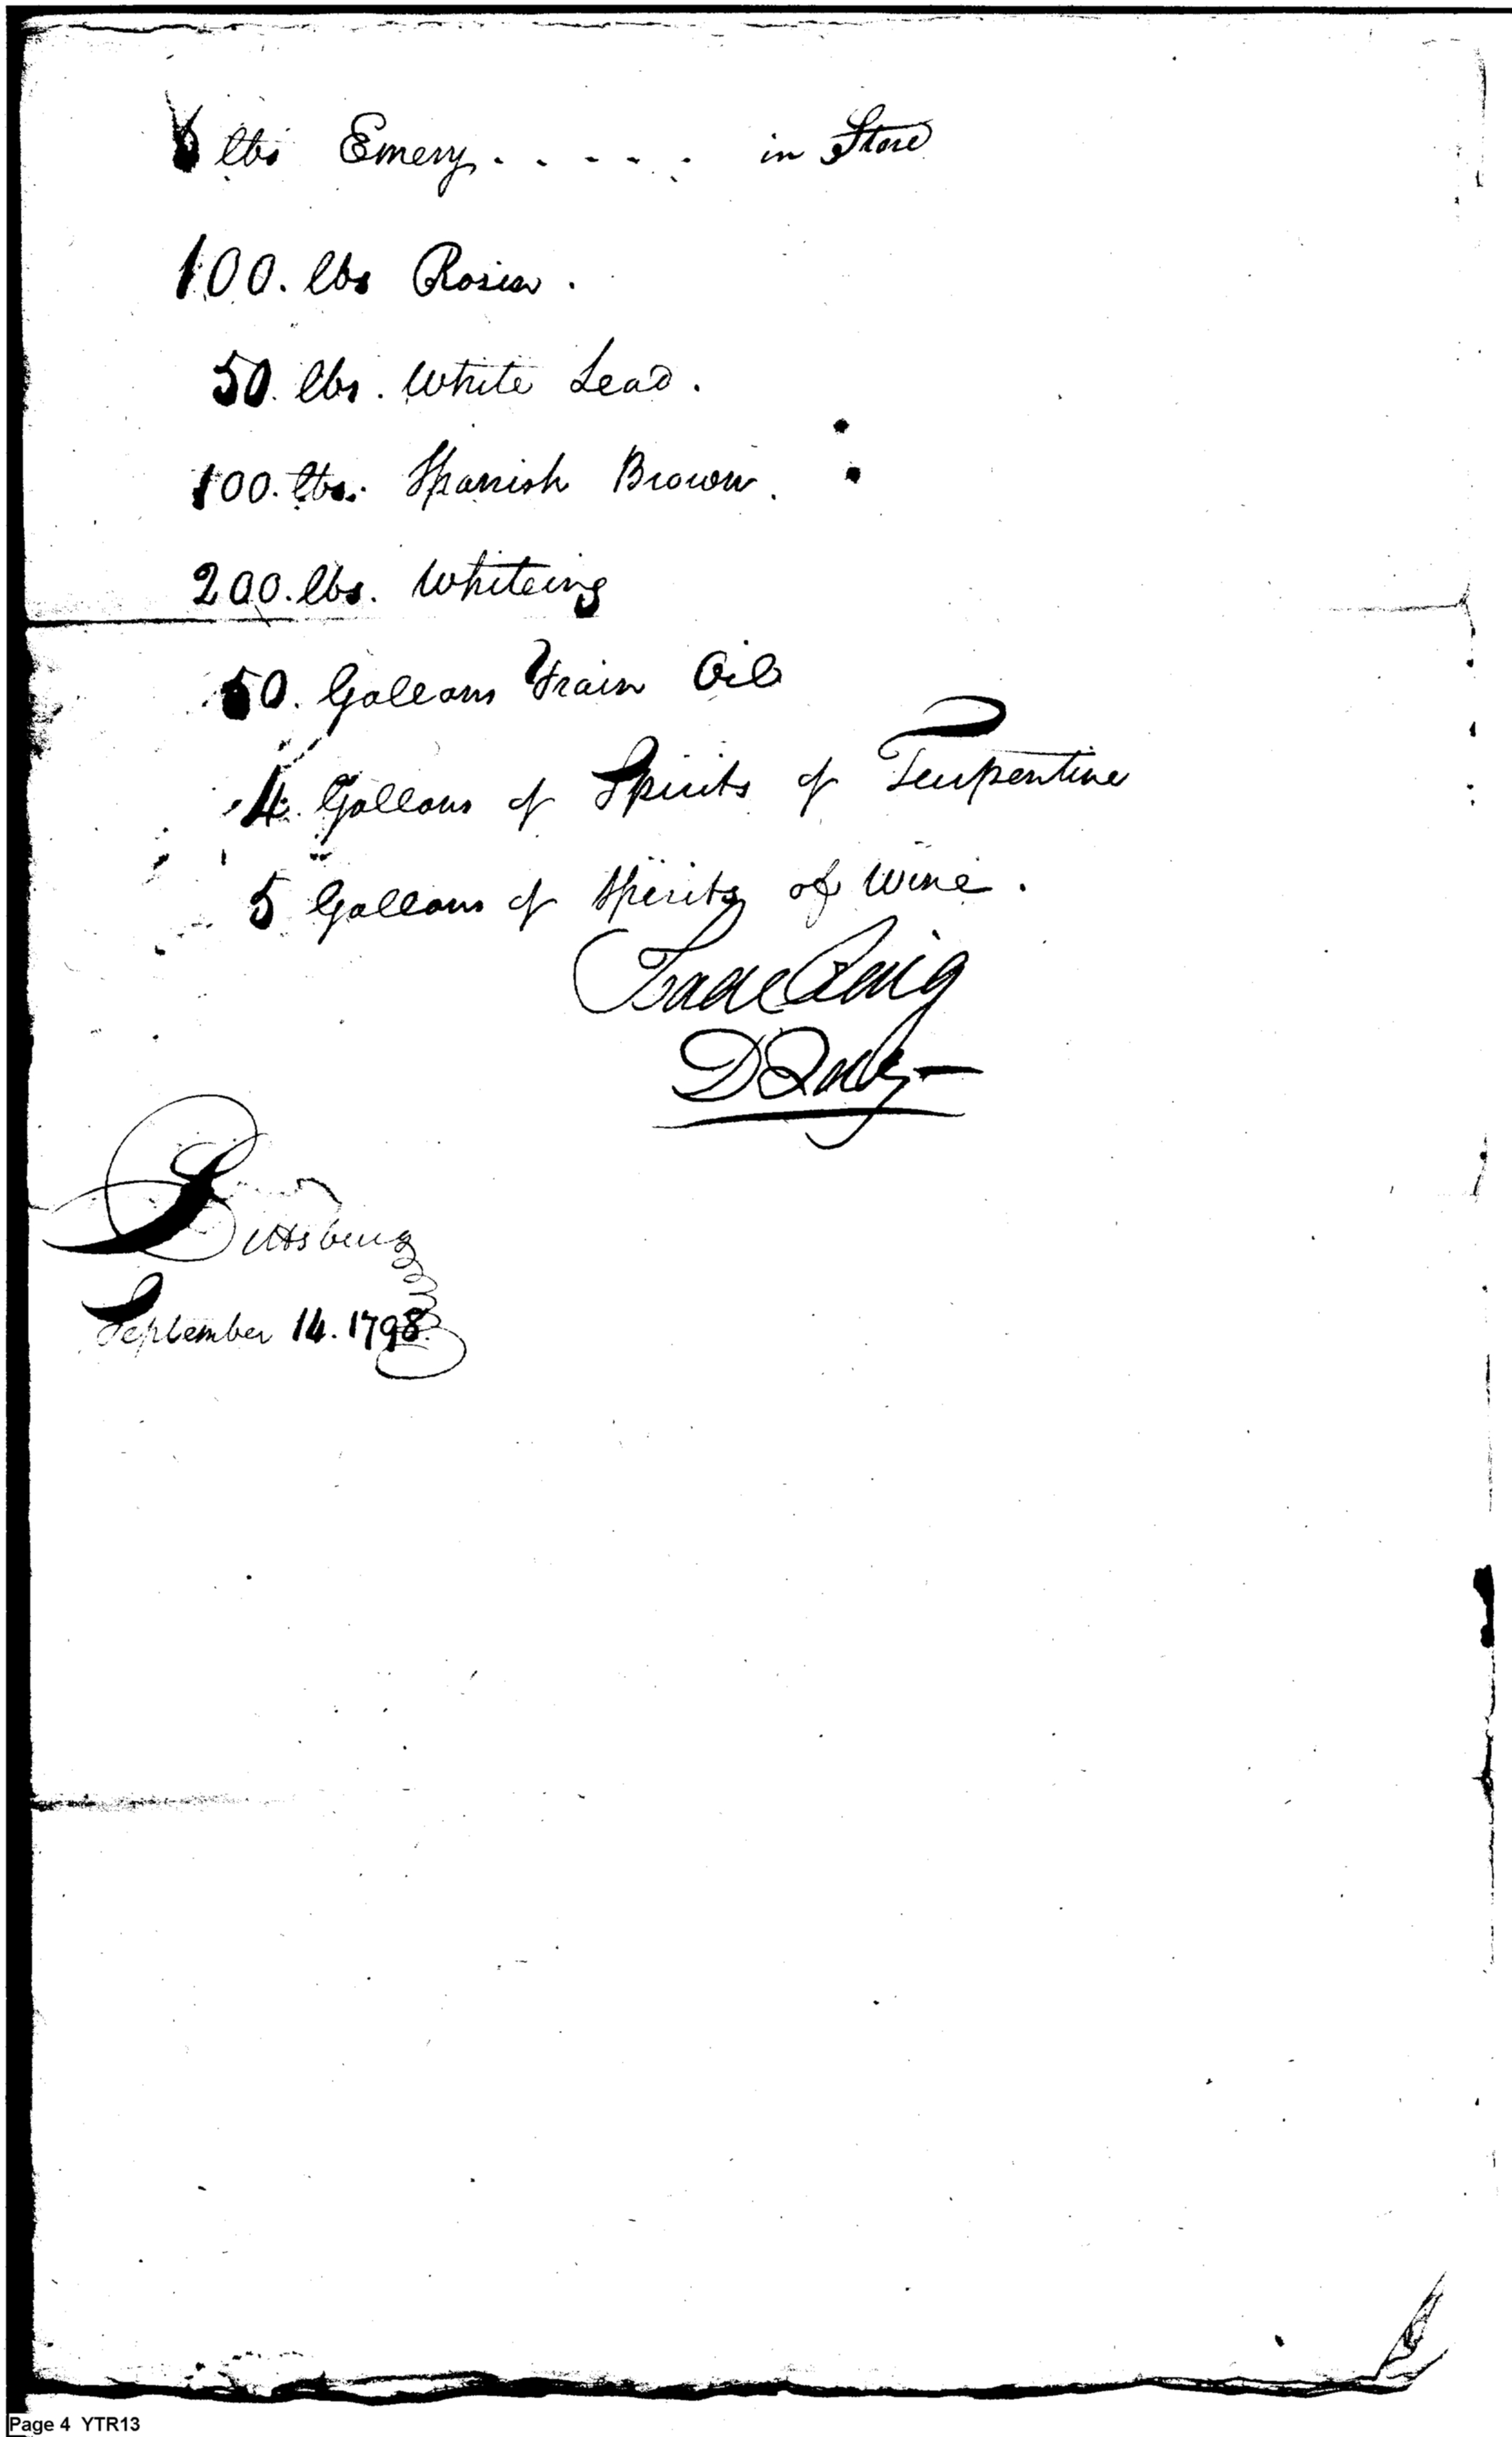 6 lbs Emery . . . . . in Store
100. lbs Rosin .
50. lbs. White Lead .
100. lbs. Spanish Brown .
200. lbs. Whiteing
50. Gallons Train Oil
4. Gallons of Spirits of Turpentine
5 Gallons of Spirits of Wine .
Isaac Craig
D Q M
Pittsburg
September 14. 1798.
Page 4 YTR13